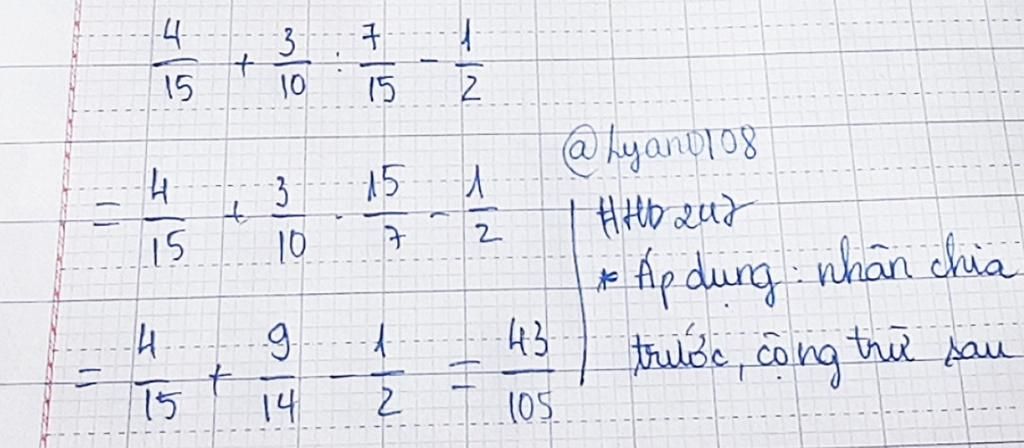 4/15 + 3/10 : 7/15 - 1/2
= 4/15 + 3/10 . 15/7 - 1/2
= 4/15 + 9/14 - 1/2 = 43/105
@Lyan0108
* Áp dụng : nhân chia
trước, cộng trừ sau